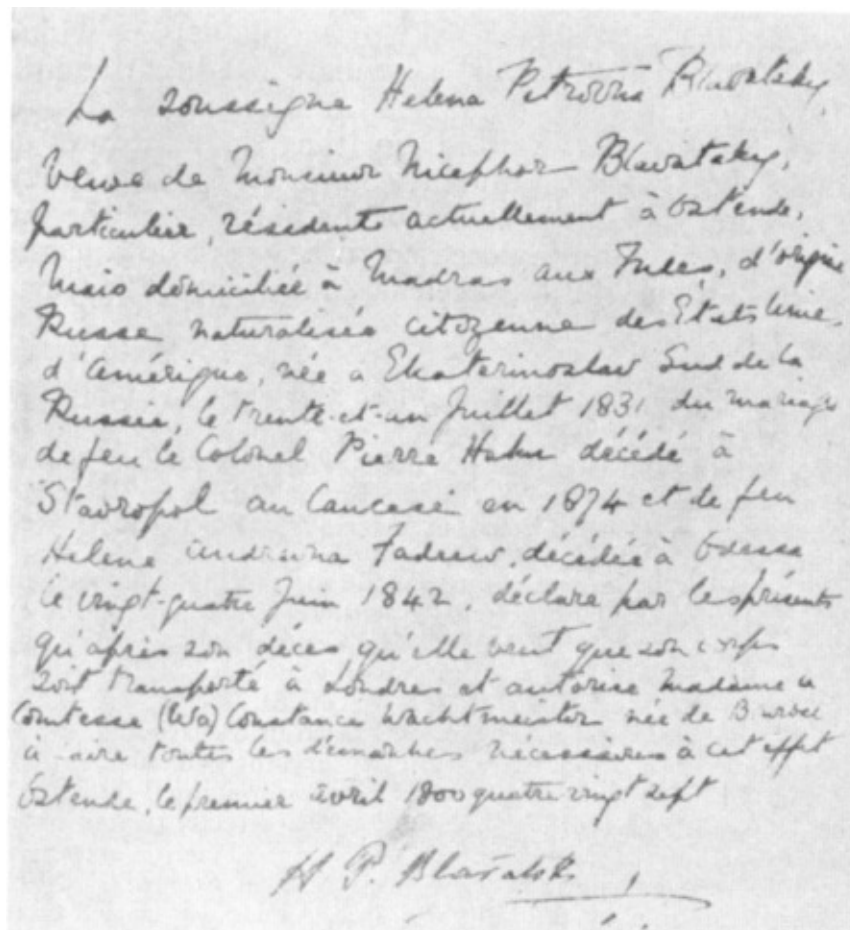 La soussigné Helena Petrovna Blavatsky,
veuve de Monsieur Nicephor Blavatsky,
particulier, résidente actuellement à Ostende,
mais domiciliée à Madras aux Indes, d'origine
Russe naturalisée citoyenne des États Unis
d'Amérique, née a Ekaterinoslaw Sud de la
Russie, le trente-et-un Juillet 1831 du mariage
de feu le Colonel Pierre Hahn décédé à
Stavropol au Caucase en 1874 et de feu
Helene Fadeew, décédée à Odessa
le vingt-quatre Juin 1842, déclare par les présents
qu'après son déces qu'elle veut que son corps
soit transporté à Londres et autorise Madame la
Comtesse Constance Wachtmeister née de
à faire toutes les démarches nécessaires à cet effet
Ostende, le premier Avril 1800 quatre vingt sept
H P. Blavatsky